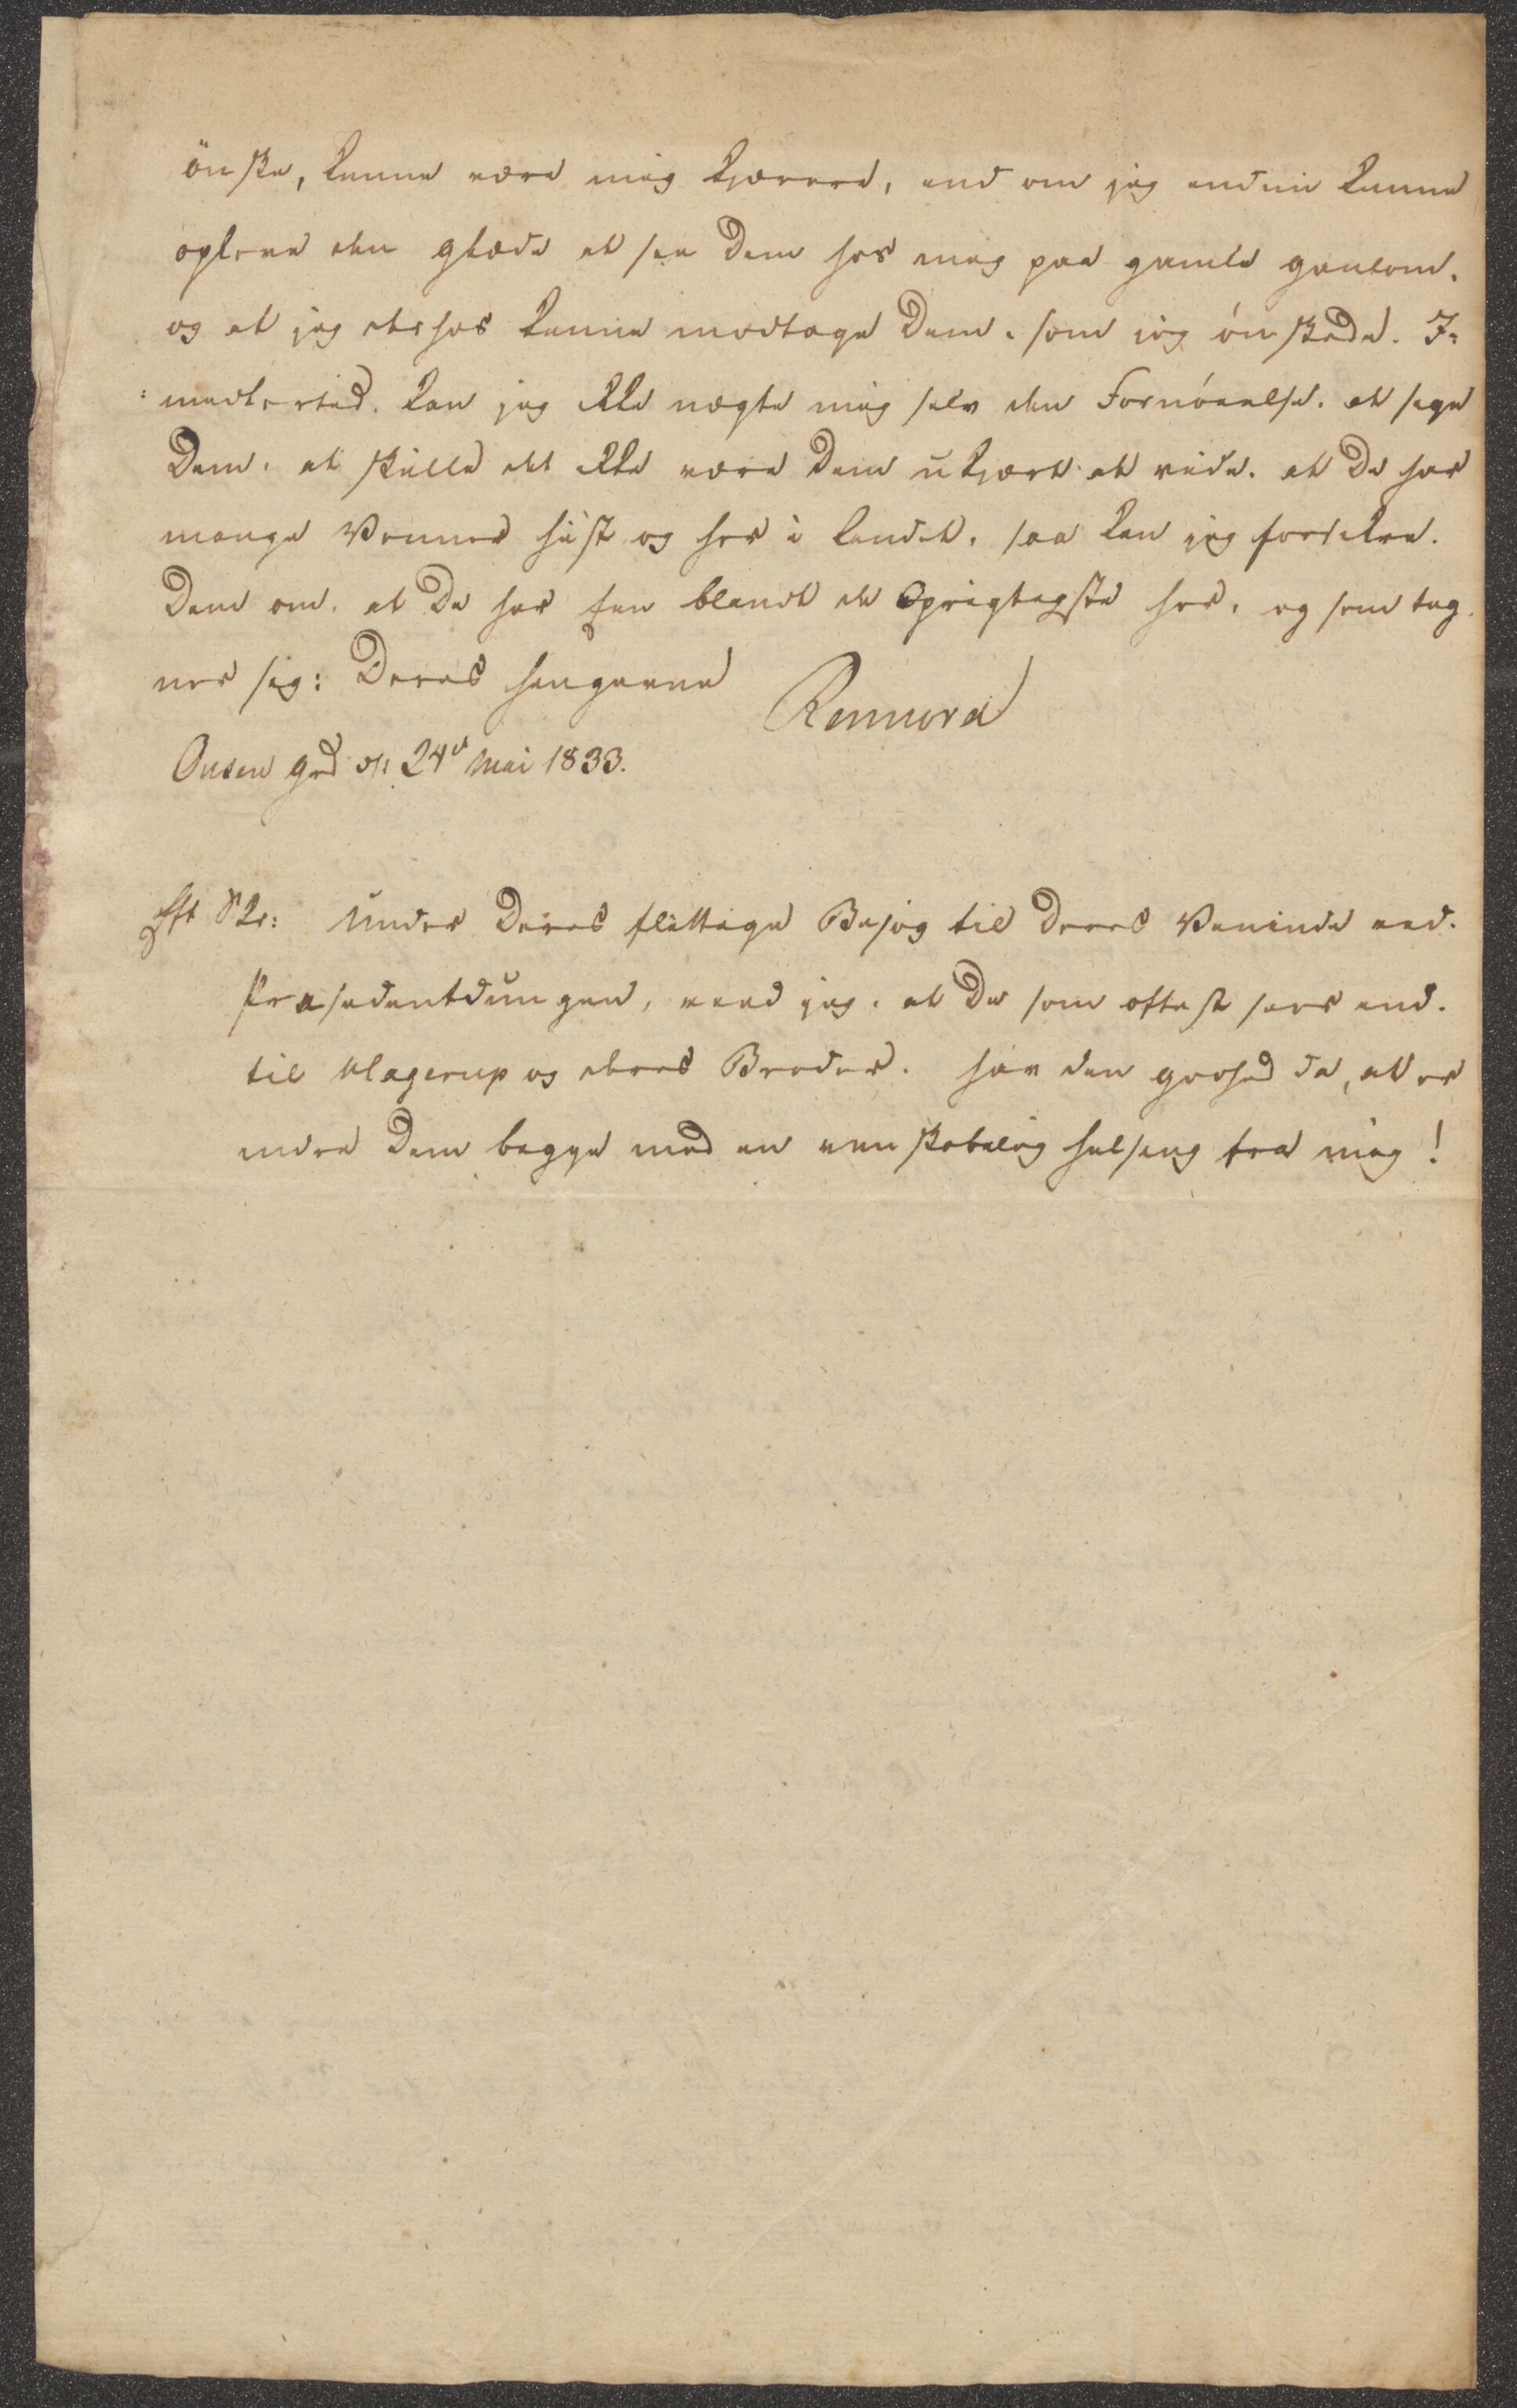 önske, kunne være mig kjærere, end om jeg endnu kunne
opleve den glæde at see Dem hos mig paa gamle
og at jeg derhos kunne modtage Dem, som jeg ónskede. I=
:midlertid. kan jeg ikke nægte mig selv den Fornóielse. at sige
Dem. at skulle det ikke være Dem ukjært at vide. at De har
mange Venner hist og her i Landet, saa kan jeg forsikre.
Dem om. at De har een blandt de Oprigtigste her. og som teg
ner sig: Deres hengivne
Rennord
Ousen grd d. 24d Mai 1833.
Eft Skr: Under Deres flittige Besøg til Deres Veninde ved.
Præsidentdungen, veed jeg. at De som oftest seer ind.
til Klagerup og deres Broder. hav den godhed da, at er
indre Dem begge med en venskabelig hilsing fra mig!